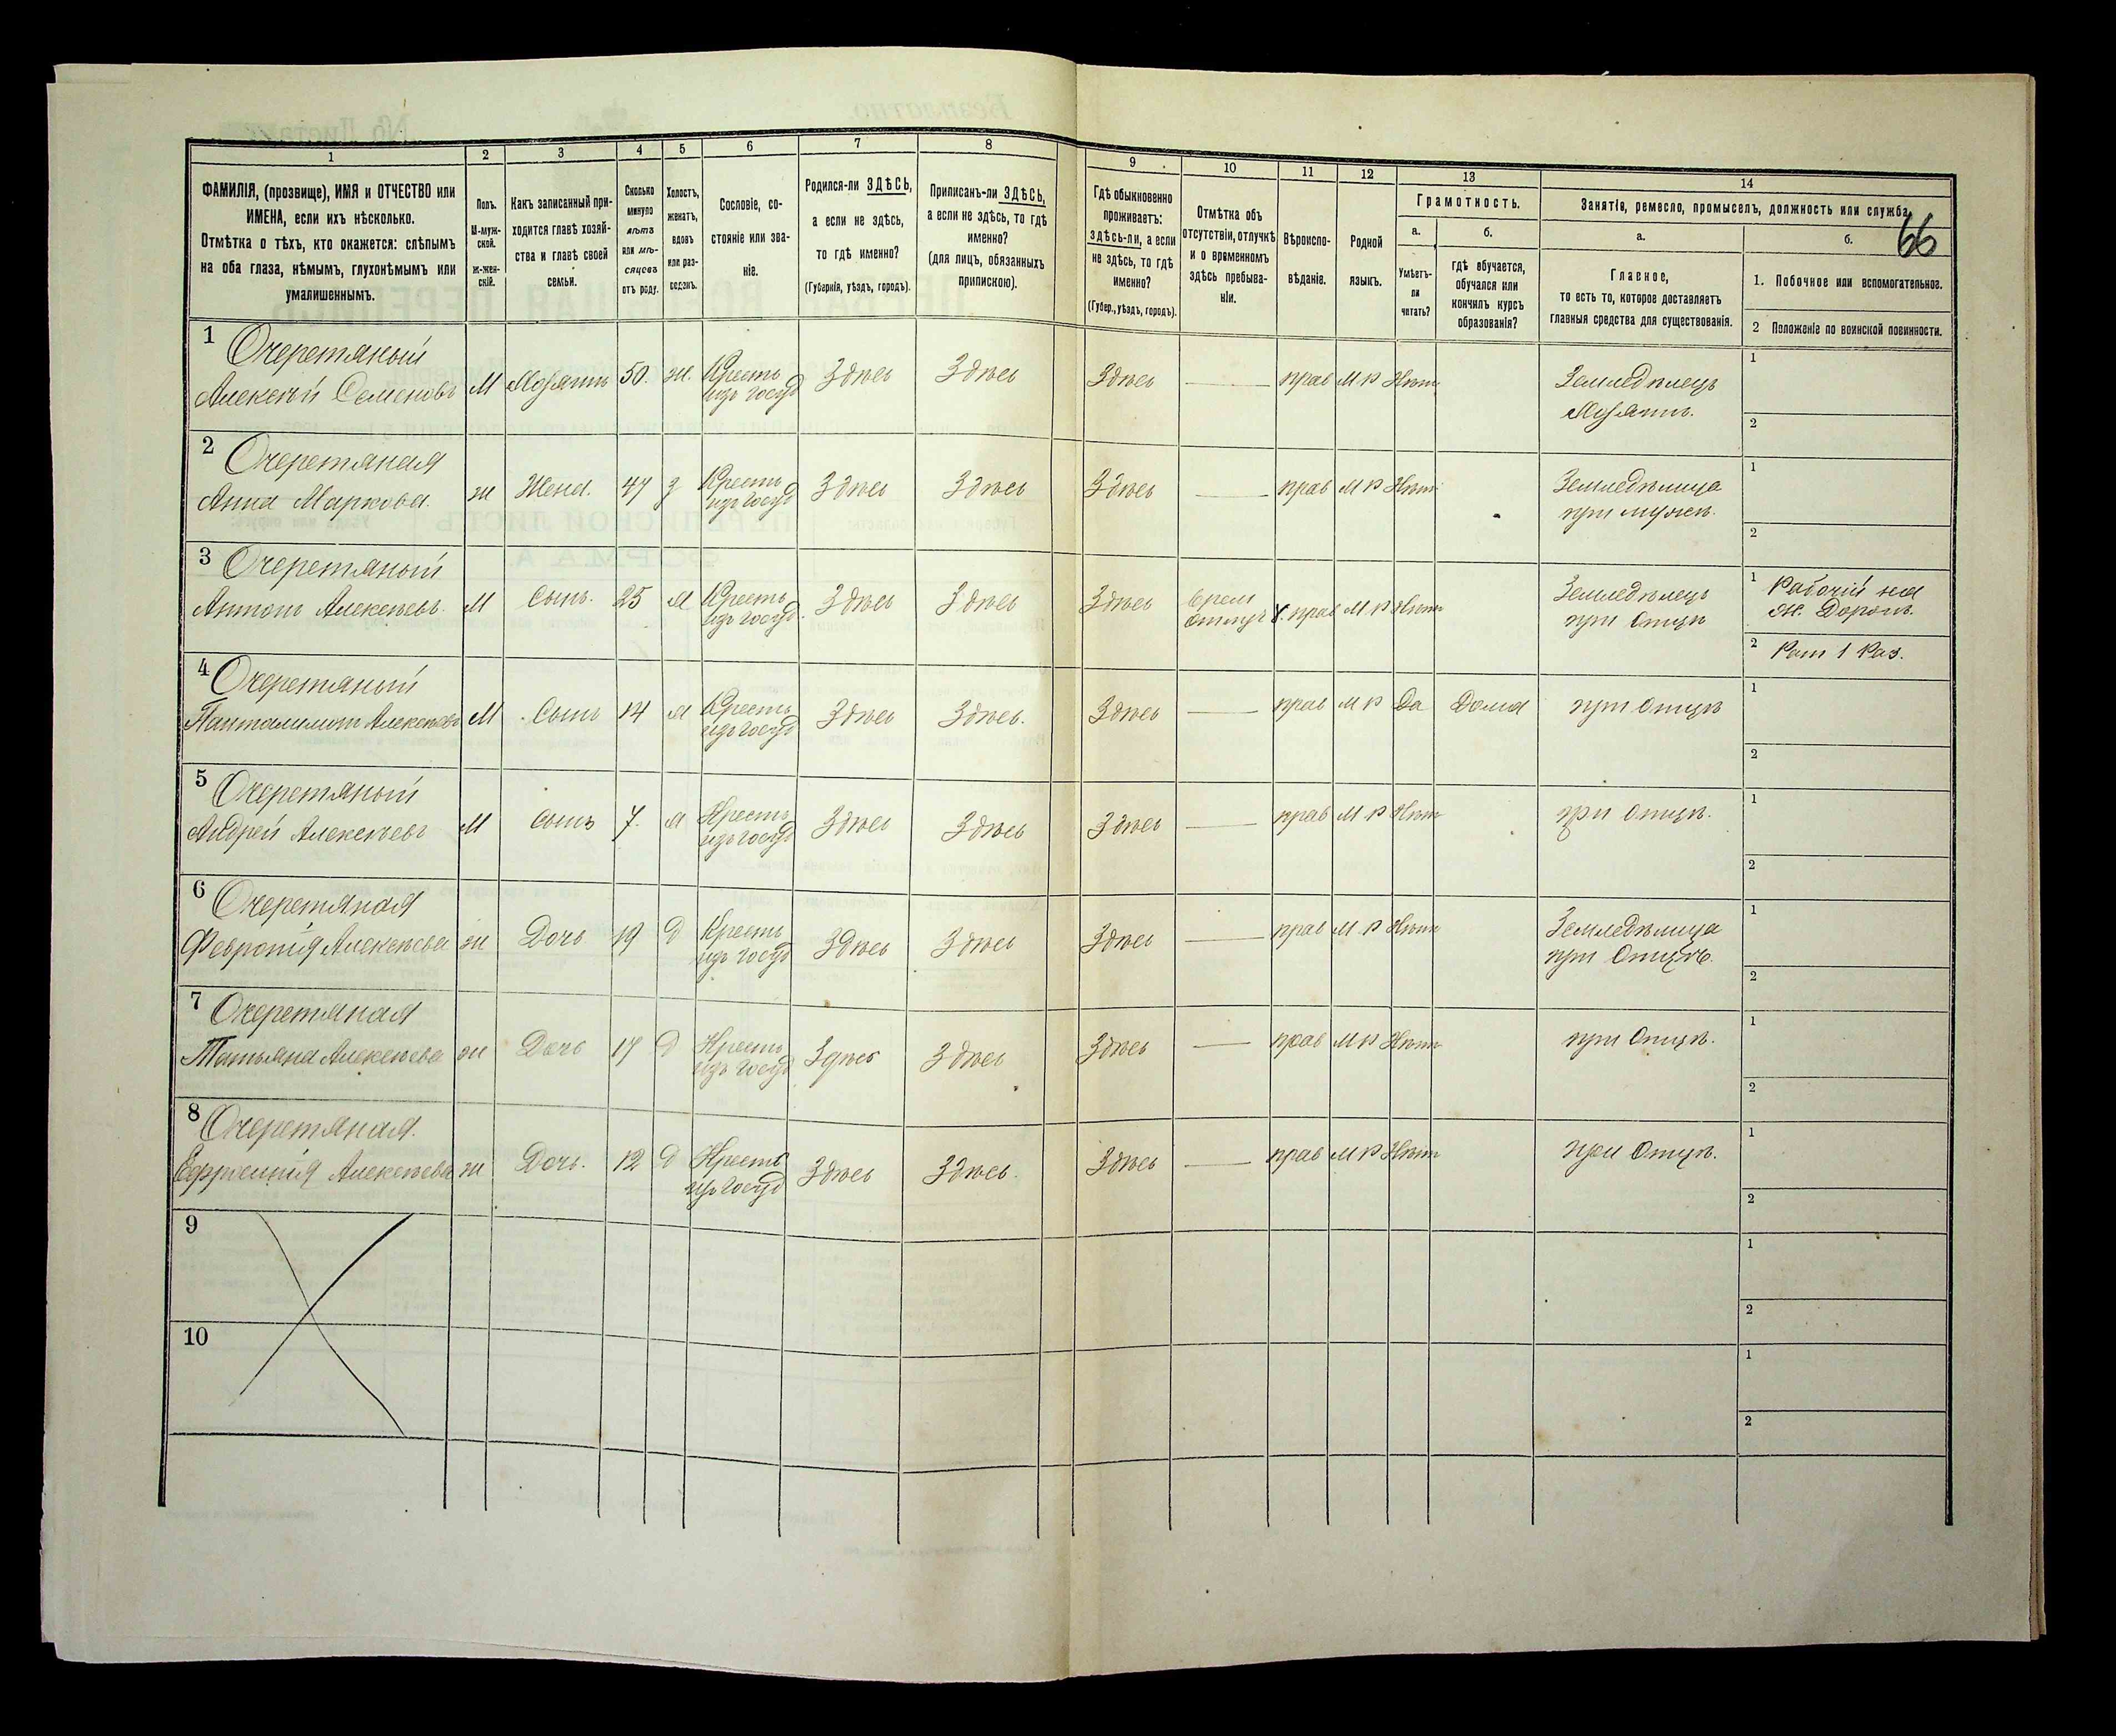 66
1 2 3 4 5 6 7 8 9 10 11 12 13 14
ФАМИЛІЯ, (прозвище), ИМЯ и ОТЧЕСТВО или
ИМЕНА, если ихъ нѣсколько.
Отмѣтка о тѣхъ, кто окажется: слѣпымъ
на оба глаза, нѣмымъ, глухонѣмымъ или
умалишеннымъ.
Полъ.
М-муж-
ской.
ж-жен-
скій.
Какъ записанный при-
ходится главѣ хозяй-
ства и главѣ своей
семьи.
Сколько
минуло
лѣтъ
или мѣ-
сяцевъ
отъ роду.
Холостъ,
женатъ,
вдовъ
или раз-
веденъ.
Сословіе, со-
стояніе или зва-
ніе.
Родился-ли ЗДѢСЬ,
а если не здѣсь,
то гдѣ именно?
(Губернія, уѣздъ, городъ).
Приписанъ-ли ЗДѢСЬ,
а если не здѣсь, то гдѣ
именно?
(для лицъ, обязанныхъ
припискою).
Гдѣ обыкновенно
проживаетъ:
здѣсь-ли, а если
не здѣсь, то гдѣ
именно?
(Губер., уѣздъ, городъ).
Отмѣтка объ
отсутствіи, отлучкѣ
и о временномъ
здѣсь пребыва-
ніи.
Вѣроиспо-
вѣданіе.
Родной
языкъ.
Грамотность.
а.
Умѣетъ-
ли
читать?
б.
гдѣ обучается,
обучался или
кончилъ курсъ
образованія?
Занятіе, ремесло, промыселъ, должность или служба
а.
Главное,
то есть то, которое доставляетъ
главныя средства для существованія.
б.
1. Побочное или вспомогательное.
2 Положеніе по воинской повинности.
1 Очеретяный
Алексѣй Семеновъ М Хозяинъ 50. ж. Кресть изъ госуд Здѣсь Здѣсь Здѣсь — прав М Р Нѣтъ Земледѣлецъ
Хозяинъ.
1
2
2 Очеретяная
Анна Маркова. ж Жена. 47 з Кресть изъ госуд Здѣсь Здѣсь Здѣсь — прав М Р Нѣтъ Земледѣлица
при мужѣ.
1
2
3 Очеретяный
Антонъ Алексѣевъ. М Сынъ. 25 х Кресть изъ госуд. Здѣсь Здѣсь Здѣсь Врем Отлуч прав М Р Нѣтъ Земледѣлецъ
при Отцѣ
1 Рабочій на
ж. Дорогѣ.
2 Рат 1 Раз.
4 Очеретяный
Панталимонъ Алексѣевъ М Сынъ 14 х Кресть изъ госуд Здѣсь Здѣсь. Здѣсь — прав М Р Да Дома при Отцѣ
1
2
5 Очеретяный
Андрей Алексѣевъ М Сынъ 7. х Кресть изъ госуд Здѣсь Здѣсь Здѣсь — прав М Р Нѣтъ при Отцѣ.
1
2
6 Очеретяная
Февронія Алексѣева ж Дочь 19 д Кресть изъ госуд Здѣсь Здѣсь Здѣсь — прав М Р Нѣтъ Земледѣлица
при Отцѣ.
1
2
7 Очеретяная
Татьяна Алексѣева ж Дочь 17 д Кресть изъ госуд Здѣсь Здѣсь Здѣсь — прав М Р Нѣтъ при Отцѣ.
1
2
8 Очеретяная.
Ефросинія Алексѣева ж Дочь. 12 д Кресть изъ госуд Здѣсь Здѣсь. Здѣсь — прав М Р Нѣтъ при Отцѣ.
1
2
9
1
2
10
1
2